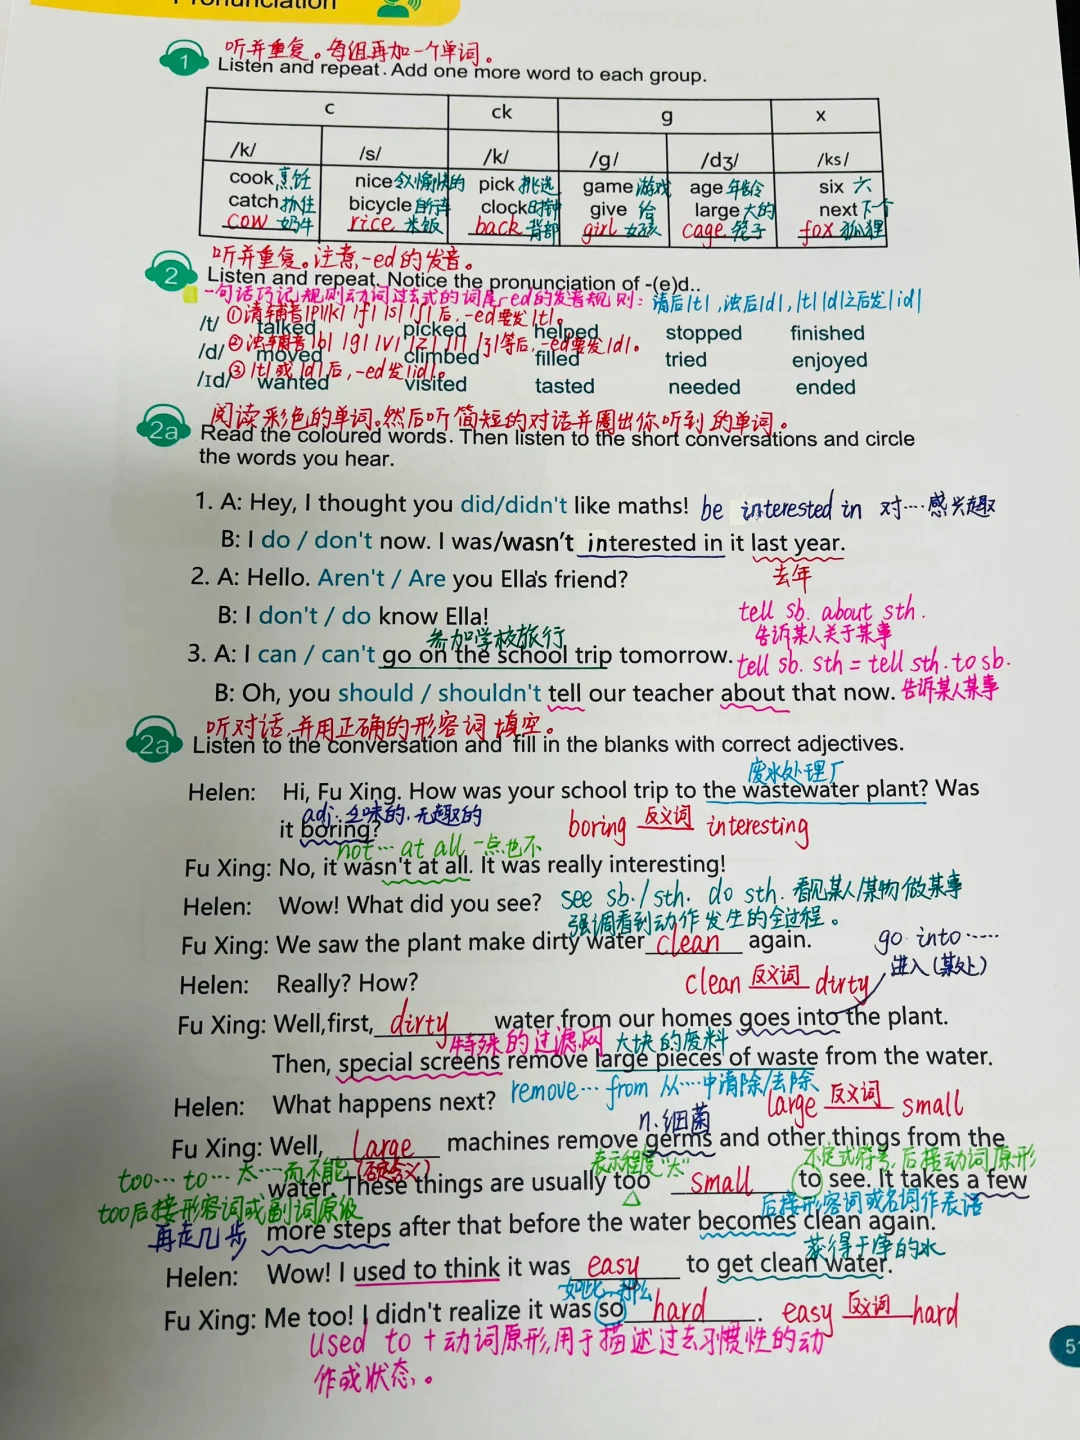 Pronunciation
听并重复。每组再加一个单词。
1 Listen and repeat. Add one more word to each group.
c ck g x
/k/ /s/ /k/ /g/ /dʒ/ /ks/
cook 烹饪 nice 令人愉快的 pick 挑选 game 游戏 age 年龄 six 六
catch 抓住 bicycle 自行车 clock 时钟 give 给 large 大的 next 下一个
cow 奶牛 rice 米饭 back 背部 girl 女孩 cage 笼子 fox 狐狸
听并重复。注意-ed的发音。
2 Listen and repeat. Notice the pronunciation of -(e)d..
一句话巧记规则动词过去式的词尾-ed的发音规则: 清后|t|,浊后|d|,|t||d|之后发|id|
①清辅音|p||k||f||s||ʃ|后,-ed要发|t|。
/t/ talked picked helped stopped finished
②浊辅音|b||g||v||z||ʒ|等后,-ed要发|d|。
/d/ moved climbed filled tried enjoyed
③|t|或|d|后,-ed发|id|。
/ɪd/ wanted visited tasted needed ended
阅读彩色的单词。然后听简短的对话并圈出你听到的单词。
2a Read the coloured words. Then listen to the short conversations and circle
the words you hear.
1. A: Hey, I thought you did/didn't like maths! be interested in 对····感兴趣
B: I do / don't now. I was/wasn't interested in it last year.
去年
2. A: Hello. Aren't / Are you Ella's friend?
B: I don't / do know Ella!
tell sb. about sth.
告诉某人关于某事
参加学校旅行
3. A: I can / can't go on the school trip tomorrow. tell sb. sth = tell sth. to sb.
B: Oh, you should / shouldn't tell our teacher about that now. 告诉某人某事
听对话,并用正确的形容词填空。
2a Listen to the conversation and fill in the blanks with correct adjectives.
废水处理厂
Helen: Hi, Fu Xing. How was your school trip to the wastewater plant? Was
adj. 乏味的.无趣的
it boring? boring 反义词 interesting
not··· at all 一点也不
Fu Xing: No, it wasn't at all. It was really interesting!
Helen: Wow! What did you see? see sb./sth. do sth. 看见某人/某物做某事
强调看到动作发生的全过程。
Fu Xing: We saw the plant make dirty water clean again.
go into······
进入(某处)
Helen: Really? How? clean 反义词 dirty
Fu Xing: Well,first, dirty water from our homes goes into the plant.
特殊的过滤网 大块的废料
Then, special screens remove large pieces of waste from the water.
remove··· from 从····中清除/去除
Helen: What happens next? large 反义词 small
n.细菌
Fu Xing: Well, large machines remove germs and other things from the
too··· to··· 太····而不能(否定含义) 表示程度"太" 不定式符号,后接动词原形
water. These things are usually too small to see. It takes a few
too后接形容词或副词原级 后接形容词或名词作表语
再走几步 more steps after that before the water becomes clean again.
获得干净的水
Helen: Wow! I used to think it was easy to get clean water.
如此,那么
Fu Xing: Me too! I didn't realize it was so hard. easy 反义词 hard
used to + 动词原形,用于描述过去习惯性的动
作或状态。
51